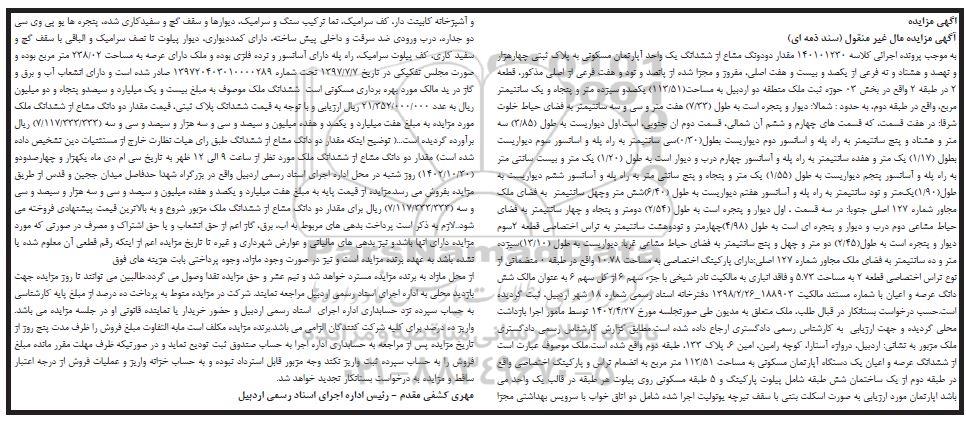 آگهی مزایده
آگهی مزایده مال غیر منقول (سند ذمه ای)
به موجب پرونده اجرائی کلاسه ۱۴۰۱۰۱۲۳۰ مقدار دودوتک مشاع از ششدانگ یک واحد آپارتمان مسکونی به پلاک ثبتی چهارهزار
و نهصد و هشتاد و نه فرعی از یکصد و بیست و هفت اصلی، مفروز و مجزا شده از پانصد و نود و هفت فرعی از اصلی مذکور، قطعه
۲ در طبقه ۲ واقع در بخش ۰۳ حوزه ثبت ملک منطقه دو اردبیل به مساحت(۱۱۳/۵۱) یکصدو سیزده متر و پنجاه و یک سانتیمتر
مربع، واقع در طبقه دوم، به حدود : شمالا: دیوار و پنجره است به طول (۷/۳۳) هفت متر و سی و سه سانتیمتر به فضای حیاط خلوت
شرقا: در هفت قسمت، که قسمت های چهارم و ششم آن شمالی، قسمت دوم ان جنوبی، است.اول دیواریست به طول (۳/۸۵) سه
متر و هشتاد و پنج سانتیمتر به راه پله و اسانسور دوم دیواریست بطول(۰/۳۰)سی سانتیمتر به راه پله و اسانسور سوم دیواریست
بطول (۱/۱۷) یک متر و هفده سانتیمتر به راه پله و آسانسور چهارم درب و دیوار است به طول (۱/۲۰) یک متر و بیست سانتی متر
به راه پله و آسانسور پنجم دیواریست به طول (۱/۵۵) یک متر و پنجاه و پنج سانتی متر به راه پله و آسانسور ششم دیواریست به
طول(۱/۹۰)یک‌متر و نود سانتیمتر به راه پله و آسانسور هفتم دیواریست به طول (۶/۴۰)شش متر وچهل سانتیمتر به فضای ملک
مجاور شماره ۱۲۷ اصلی جنوبا: در سه قسمت ، اول دیوار و پنجره است به طول (۲/۵۴) دومتر و پنجاه و چهار سانتیمتر به فضای
حیاط مشاعی دوم درب و دیوار و پنجره ای است به طول (۴/۹۸)چهارمتر و نودوهشت سانتیمتر به تراس اختصاصی قطعه ۲سوم
دیوار و پنجره است به طول(۲/۴۵) دو متر و چهل و پنج سانتیمتر به فضای حیاط مشاعی غربا: دیواریست به طول (۱۳/۱۰)سیزده
متر و ده سانتیمتر به فضای ملک مجاور شماره ۱۲۷ اصلی:دارای پارکینگ اختصاصی به مساحت ۱۰.۷۸ واقع در طبقه ۰ منضماتی از
نوع تراس اختصاصی قطعه ۲ به مساحت ۵.۷۲ و فاقد انباری به مالکیت نادر شیخی با جزء سهم ۶ از کل سهم ۶ به عنوان مالک شش
دانگ عرصه و اعیان با شماره مستند مالکیت ۱۸۸۹۰۳_۱۳۹۸/۲/۲۶ دفترخانه اسناد رسمی شماره ۱۸ شهر اردبیل، ثبت گردیده
است.حسب درخواست بستانکار در قبال طلب، ملک متعلق به مدیون طی صورتجلسه مورخ ۱۴۰۲/۴/۲۷ توسط مامور اجرا بازداشت
محلی گردیده و جهت ارزیابی به کارشناس رسمی دادگستری ارجاع داده شده است.مطابق گزارش کارشناس رسمی دادگستری
ملک مزبور به نشانی: اردبیل، دروازه آستارا، کوچه رامین، امین ۶، پلاک ۱۳۳، طبقه دوم واقع شده است.ملک موصوف عبارت است
از ششدانگ عرصه و اعیان یک دستگاه آپارتمان مسکونی به مساحت ۱۱۳/۵۱ متر مربع به انضمام تراس و پارکینگ اختصاصی واقع
در طبقه دوم از یک ساختمان شش طبقه شامل پیلوت پارکینگ و ۵ طبقه مسکونی روی پیلوت هر طبقه در قالب یک واحد می
باشد اپارتمان مورد ارزیابی به صورت اسکلت بتنی با سقف تیرچه یونولیت اجرا شده شامل دو اتاق خواب با سرویس بهداشتی مجزا
و آشپزخانه کابینت دار، کف سرامیک، نما ترکیب سنگ و سرامیک، دیوارها و سقف گچ و سفیدکاری شده، پنجره ها یو پی وی سی
دو جداره، درب ورودی ضد سرقت و داخلی پیش ساخته، دارای کمددیواری، دیوار پیلوت تا نصف سرامیک و الباقی با سقف گچ و
سفید کاری، کف پیلوت سرامیک، راه پله دارای آسانسور و نرده فلزی بوده و ملک دارای عرصه به مساحت ۲۳۸/۰۲ متر مربع بوده و
صورت مجلس تفکیکی در تاریخ ۱۳۹۷/۷/۷ تحت شماره ۱۳۹۷۲۰۴۰۳۰۱۰۰۰۰۲۸۹ صادر شده است و دارای انشعاب آب و برق و
گاز در ید مالک مورد بهره برداری مسکونی است. ششدانگ ملک موصوف به مبلغ بیست و یک میلیارد و سیصدو پنجاه و دو میلیون
ریال به عدد ۲۱/۳۵۲/۰۰۰/۰۰۰ ریال ارزیابی و با توجه به قیمت ششدانگ پلاک ثبتی، قیمت مقدار دو دانگ مشاع از ششدانگ ملک
مورد مزایده به مبلغ هفت میلیارد و یکصد و هفده میلیون و سیصد و سی و سه هزار و سیصد و سی و سه (۷/۱۱۷/۳۳۳/۳۳۳) ریال
برآورده گردیده است...( توضیح اینکه مقدار دو دانگ مشاع از ششدانگ طبق رای هیات نظارت خارج از مستثنیات دین تشخیص داده
شده است) مقدار دو دانگ مشاع از ششدانگ ملک مورد نظر از ساعت ۹ الی ۱۲ ظهر به تاریخ سی ام دی ماه یکهزار و چهارصدودو
(۱۴۰۲/۱۰/۳۰) روز شنبه در محل اداره اجرای اسناد رسمی اردبیل واقع در بزرگراه شهدا حدفاصل میدان ججین و قدس از طریق
مزایده بفروش می رسد.مزایده از قیمت پایه به مبلغ هفت میلیارد و یکصد و هفده میلیون و سیصد و سی و سه هزار و سیصد و سی
و سه (۷/۱۱۷/۳۳۳/۳۳۳) ریال برای مقدار دو دانگ مشاع از ششدانگ ملک مزبور شروع و به بالاترین قیمت پیشنهادی فروخته می
شود.لازم به ذکر است پرداخت بدهی های مربوط به آب، برق، گاز اعم از حق انشعاب و یا حق اشتراک و مصرف در صورتی که مورد
مزایده دارای آنها باشد و نیز بدهی های مالیاتی و عوارض شهرداری و غیره تا تاریخ مزایده اعم از اینکه رقم قطعی آن معلوم شده یا
نشده باشد به عهده برنده مزایده است و نیز در صورت وجود مازاد، وجوه پرداختی بابت هزینه های فوق
از محل مازاد به برنده مزایده مسترد خواهد شد و نیم عشر و حق مزایده نقدا وصول می گردد.طالبین می توانند تا روز مزایده جهت
بازدید محلی به اداره اجرای اسناد رسمی اردبیل مراجعه نمایند. شرکت در مزایده منوط به پرداخت ده درصد از مبلغ پایه کارشناسی
به حساب سپرده نزد حسابداری اداره اجرای اسناد رسمی اردبیل و حضور خریدار یا نماینده قانونی او در جلسه مزایده می باشد.
واریز ده درصد برای کلیه شرکت کنندگان الزامی می باشد.برنده مزایده مکلف است مابه التفاوت مبلغ فروش را ظرف مدت پنج روز از
تاریخ مزایده پس از مراجعه به حسابداری اداره اجرا به حساب صندوق ثبت تودیع نماید و در صورتیکه ظرف مهلت مقرر مانده مبلغ
فروش را به حساب سپرده ثبت واریز نکند وجه مزبور قابل استرداد نبوده و به حساب خزانه واریز و عملیات فروش از درجه اعتبار
ساقط و مزایده به درخواست بستانکار تجدید خواهد شد.
مهری کشفی مقدم - رئیس اداره اجرای اسناد رسمی اردبیل
۰۲۱-۸۸۳۴۹۶۷۰-۵